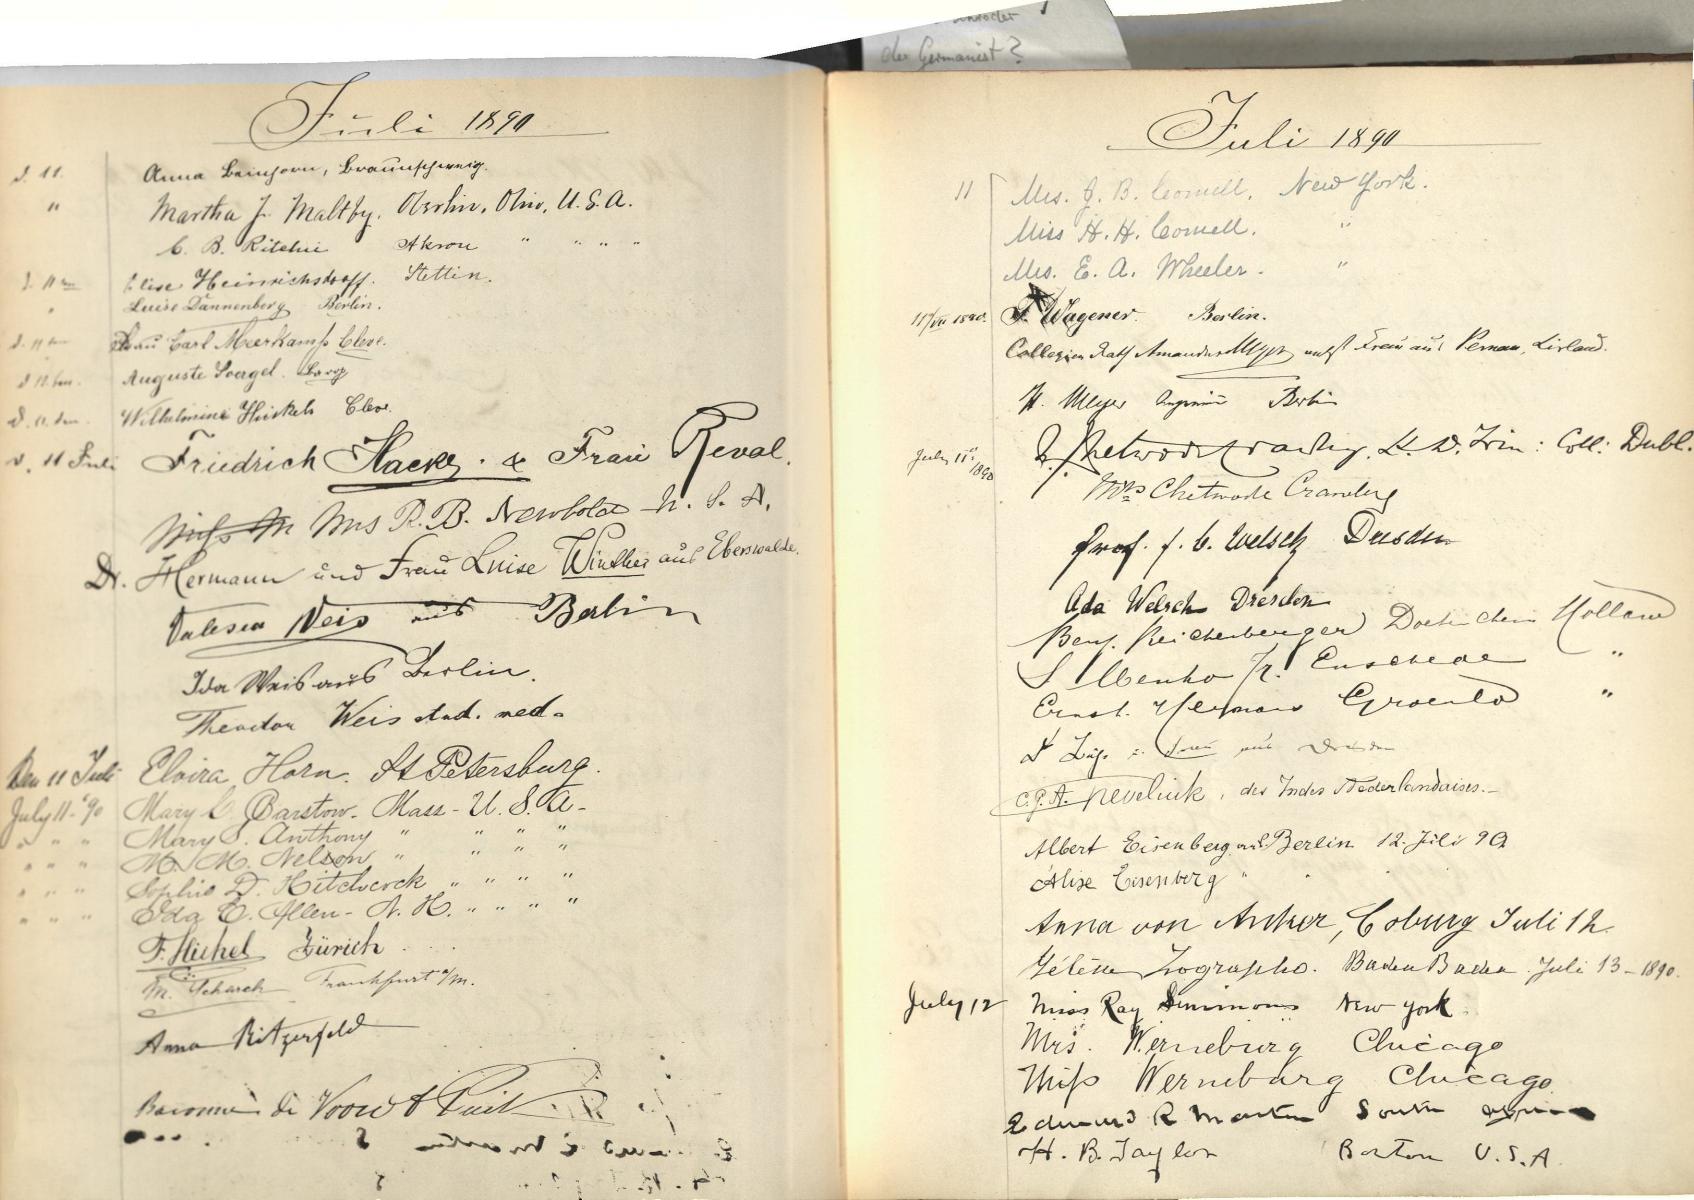 Schröder
der Germanist?
Juli 1890
d. 11. Anna Beinhorn, Braunschweig.
" Martha J. Maltby. Oberlin, Ohio, U.S.A.
C. B. Ritchie Akron " " " "
d. 11ten Elise Heinrichsdorff. Stettin.
" Luise Dannenberg Berlin.
d. 11ten Frau Carl Meerkamp Cleve.
d. 11ten. Auguste Soergel.
d. 11. ten. Wilhelmine Cleve.
d. 11 Juli Friedrich Hacke. & Frau Reval.
Miss M Mrs R. B. Newbold U. S. A.
Dr. Hermann und Frau Luise Winther aus Eberswalde.
Valeska Weis aus Berlin
Ida Weis aus Berlin.
Theodor Weis stud. med.
Den 11 Juli Elvira Horn. St Petersburg.
July 11 - '90 Mary C. Barstow - Mass - U. S. A -
" " " Mary S. Anthony " " " "
" " " M. M. Nelson " " " "
" " " Sophie D. Hitchcock " " " "
" " " Ida C. Allen - N. H. " " " "
F. Michel Zürich
M. Scharch Frankfurt a/M.
Anna Ritzerfeld
Baronne de
Juli 1890
11 Mrs. J. B. Cornell, New York.
Miss H. H. Cornell. "
Mrs. E. A. Wheeler. "
11/VII 1890. F. Wagener. Berlin.
Collegien Rath Amandus Meyer nebst Frau aus Pernau, Livland.
H. Meyer Ingenieur Berlin
July 11th 1890 Trin: Coll: Dubl.
Mrs Chetwode Crawley
Prof. f. C. Welsch Dresden
Ada Welsch Dresden
Benj. Reichenberger Doetinchem Holland
S Menko Jr. Enschede "
Ernst Hermans Groenlo "
Dresden
C. J. A. des Indes Néderlandaises. -
Albert Eisenberg aus Berlin 12. Juli 90
Alise Eisenberg " " "
Anna von Anker, Coburg Juli 12.
Hélène Zographo. Baden Baden. Juli 13 - 1890.
July 12 Miss Ray Simmons New York
Mrs. Werneburg Chicago
Miss Werneburg Chicago
Edward R Martin South
H. B. Taylor Boston U.S.A.